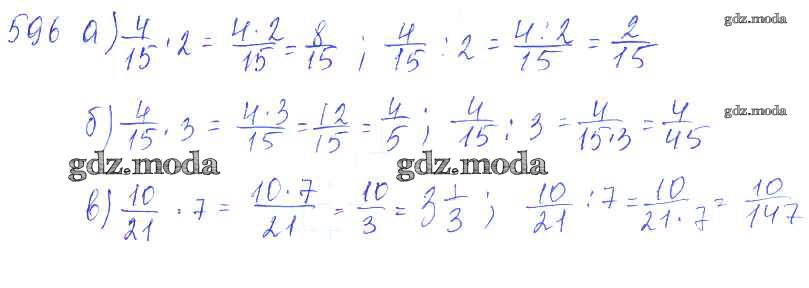 gdz.moda
596 а) 4/15 · 2 = 4·2/15 = 8/15 ; 4/15 : 2 = 4:2/15 = 2/15
б) 4/15 · 3 = 4·3/15 = 12/15 = 4/5 ; 4/15 : 3 = 4/15·3 = 4/45
gdz.moda
gdz.moda gdz.moda
в) 10/21 · 7 = 10·7/21 = 10/3 = 3 1/3 ; 10/21 : 7 = 10/21·7 = 10/147